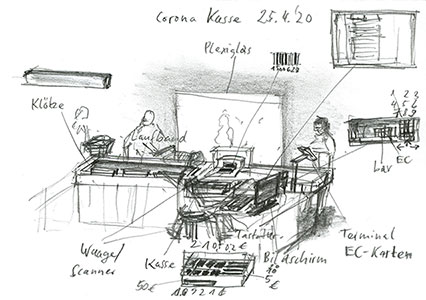 Corona Kasse 25.4.'20
Plexiglas
Klötze
Laufband
1 2 3
4 5 6
7 8 9
bar
EC
Tastatur
Waage/
Scanner
Kasse
Bildschirm
Terminal
EC-Karten
2 1 0,02 €
50€
10
5
€